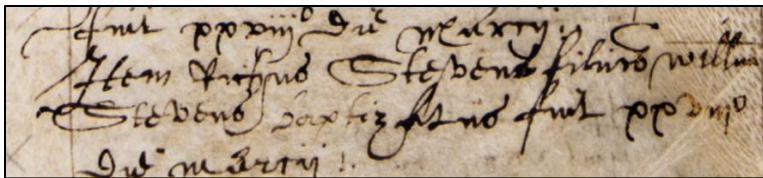 fuit xxviijº die marcii.
Item Ric̄hus Stevens filius willm̄i
Stevens baptizatus fuit xxviijº
die marcii.